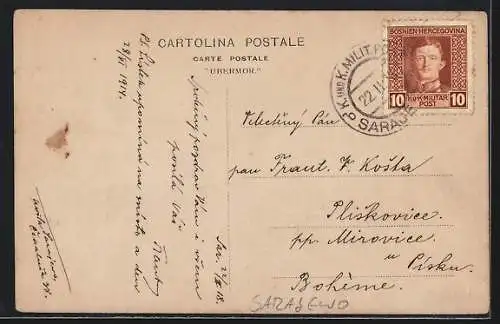 CARTOLINA POSTALE
CARTE POSTALE
"UBERMOR."
BOSNIEN HERCEGOVINA
10 K.u.K. MILITÄR 10
POST
K. UND K. MILIT. PO
22. II.
SARAJE
Velectěný Pán
pan Frant. V. Košťa
Pliškovice.
pp. Mirovice.
u Písku.
Bohème.
Sar. 22/II 18.
Srdečný pozdrav Vám i všem
posílá Váš
Frant.
na místa a den
28/VI 1914.
SARAJEWO